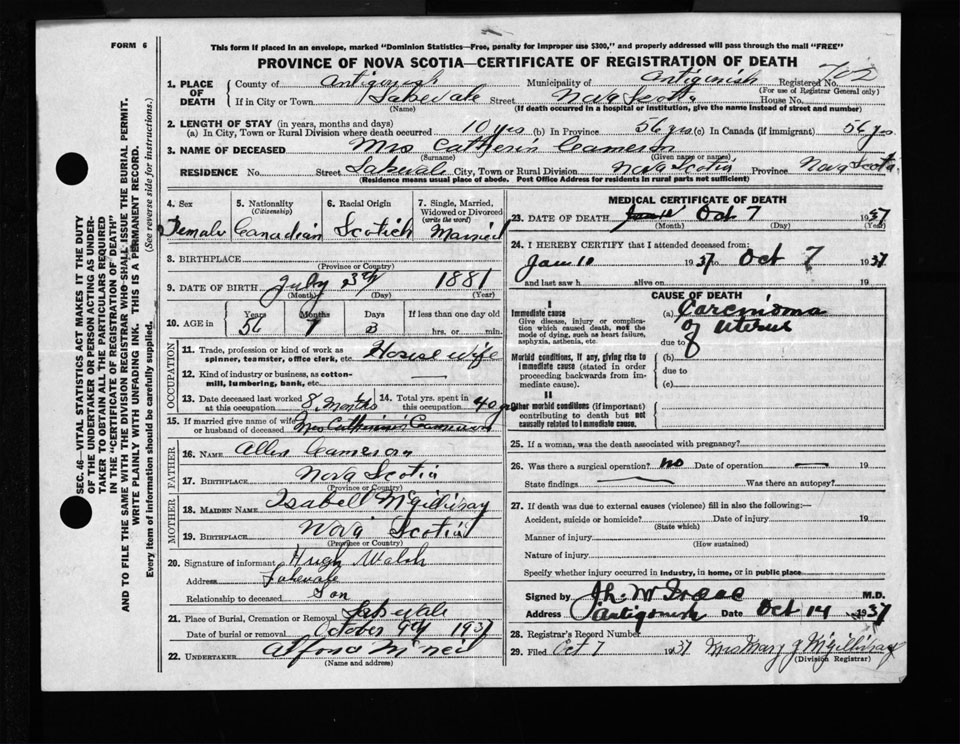 FORM 6
This form if placed in an envelope, marked "Dominion Statistics—Free, penalty for improper use $300," and properly addressed will pass through the mail "FREE"
PROVINCE OF NOVA SCOTIA—CERTIFICATE OF REGISTRATION OF DEATH
1. PLACE OF DEATH
County of Antigonish Municipality of Antigonish Registered No. 702
(For use of Registrar General only)
If in City or Town Lakevale Street Nova Scotia House No.
(Name) (If death occurred in a hospital or institution, give the name instead of street and number)
2. LENGTH OF STAY (in years, months and days)
(a) In City, Town or Rural Division where death occurred 10 yrs (b) In Province 56 yrs (c) In Canada (if immigrant) 56 yrs.
3. NAME OF DECEASED Mrs Catherin Cameron
(Surname) (Given name or names)
RESIDENCE No. Street Lakevale City, Town or Rural Division Nova Scotia Province Nova Scotia
(Residence means usual place of abode. Post Office Address for residents in rural parts not sufficient)
4. Sex Female
5. Nationality (Citizenship) Canadian
6. Racial Origin Scotich
7. Single, Married, Widowed or Divorced (write the word) Married
8. BIRTHPLACE
(Province or Country)
9. DATE OF BIRTH July 1881
(Month) (Day) (Year)
10. AGE in Years Months Days If less than one day old
56 hrs. or min.
OCCUPATION
11. Trade, profession or kind of work as spinner, teamster, office clerk, etc. House wife
12. Kind of industry or business, as cotton-mill, lumbering, bank, etc. —
13. Date deceased last worked at this occupation 8 Months
14. Total yrs. spent in this occupation 40 yrs
15. If married give name of wife or husband of deceased Mrs Catherine Cameron
FATHER
16. Name Allen Cameron
17. Birthplace Nova Scotia
(Province or Country)
MOTHER
18. MAIDEN NAME Isabell McGillivray
19. Birthplace Nova Scotia
(Province or Country)
20. Signature of informant Hugh Walsh
Address Lakevale
Relationship to deceased Son
21. Place of Burial, Cremation or Removal Lakevale
Date of burial or removal October 9th 1937
22. UNDERTAKER McNeil
(Name and address)
MEDICAL CERTIFICATE OF DEATH
23. DATE OF DEATH Oct 7 1937
(Month) (Day) (Year)
24. I HEREBY CERTIFY that I attended deceased from:
Jan 10 1937 to Oct 7 1937
and last saw h alive on 19
CAUSE OF DEATH
I
Immediate cause
Give disease, injury or complication which caused death, not the mode of dying, such as heart failure, asphyxia, asthenia, etc.
(a) Carcinoma of Uterus
due to
Morbid conditions, if any, giving rise to immediate cause (stated in order proceeding backwards from immediate cause).
(b)
due to
(c)
II
Other morbid conditions (if important) contributing to death but not causally related to immediate cause.
25. If a woman, was the death associated with pregnancy?
26. Was there a surgical operation? no Date of operation — 19
State findings Was there an autopsy?
27. If death was due to external causes (violence) fill in also the following:—
Accident, suicide or homicide? Date of injury 19
(State which)
Manner of injury
(How sustained)
Nature of injury
Specify whether injury occurred in industry, in home, or in public place
Signed by M.D.
Address Antigonish Date Oct 14 1937
28. Registrar's Record Number
29. Filed Oct 7 1937 Mrs Mary J McGillivray
(Division Registrar)
SEC. 46—VITAL STATISTICS ACT MAKES IT THE DUTY
OF THE UNDERTAKER OR PERSON ACTING AS UNDERTAKER TO OBTAIN ALL THE PARTICULARS REQUIRED
IN THE "CERTIFICATE OF REGISTRATION OF DEATH"
AND TO FILE THE SAME WITH THE DIVISION REGISTRAR WHO SHALL ISSUE THE BURIAL PERMIT.
WRITE PLAINLY WITH UNFADING INK. THIS IS A PERMANENT RECORD.
Every item of information should be carefully supplied. (See reverse side for instructions.)